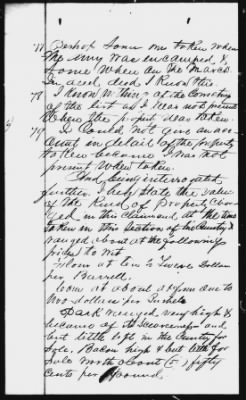 77 Perhaps Some one taken when
the army was incamped &
some when on the March
in deed did I know this.
78 I know nothing at the Completion
of the list as I was not present
when the property was taken.
79 I Could not give an ac-
count in detail of the property
taken because I was not
present when taken.
And being interrogated
further I say State the value
of the Kind of Property Char
ged in this claim and at the time
taken in this Section of the Country &
ranged about at the following
prices to wit
Flour at ten to Twelve Dollars
per Barrel,
Corn at about a from one to
two dollars per Bushel
Pork ranged very high &
because of its Scarceness and
but little left in the Country for
Sale, Bacon high & but little for
Sale worth about fifty
Cents per Pound